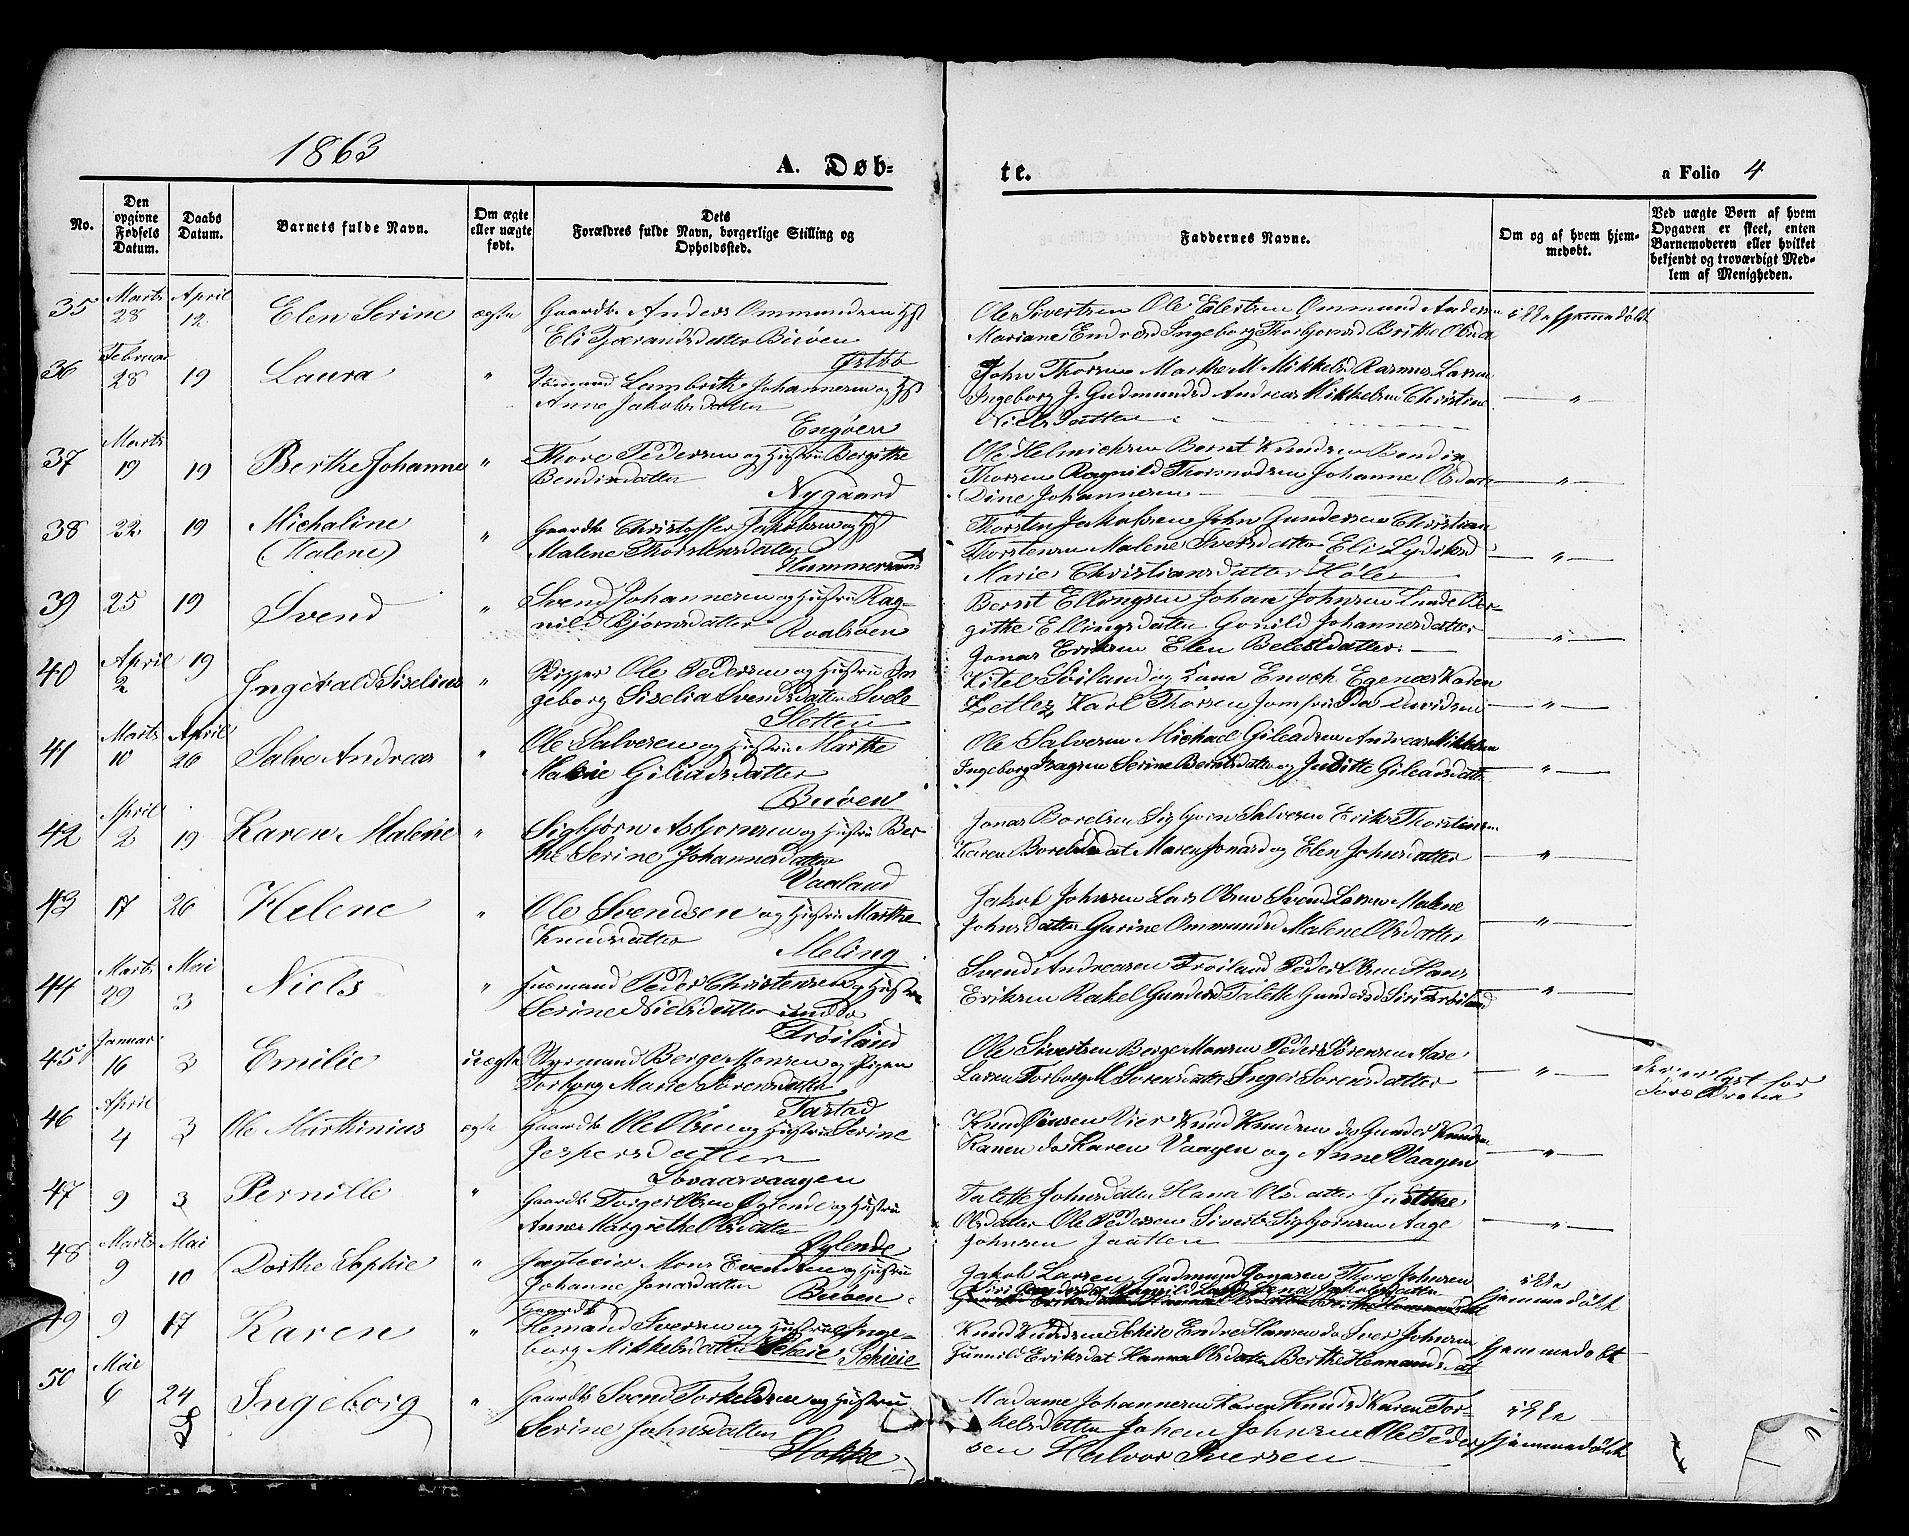 1863
A. Døb-
te.
a Folio 4
No.
Den opgivne Fødsels Datum.
Daabs Datum.
Barnets fulde Navn.
Om ægte eller uægte født.
Dets Forældres fulde Navn, borgerlige Stilling og Opholdssted.
Faddernes Navne.
Om og af hvem hjemmedøbt.
Ved uægte Børn af hvem Opgaven er skeet, enten Barnemoderen eller hvilket bekjendt og troværdigt Medlem af Menigheden.
35 Marts 28 April 12 Elen Serine ægte Gaardb. Anders Ommundsen og Hst
Eli Tjærandsdatter Buøen
Ole Sivertsen Ole Eilertsen Ommund Anders
Mariane Endresd Ingeborg Thorbjornsd Brithe Olsda
ikke hjemmedøbt
36 Februar 28 19 Laura " Lambrithe Johannesen og Hst
Anne Jakobsdatter Østbø
Engøen
John Thorsen Marthe M. Mikkelsd Rasmus Larsen
Ingeborg J. Gudmundsd Andreas Mikkelsen Christine
Nielsdatter
— " —
37 Marts 19 19 Berthe Johanne " Thore Pedersen og Hustru Bergithe
Bendixdatter Nygaard
Ole Helmichsen Bernt Knudsen Bendix
Thorsen Ragnild Thormodsen Johanne Olsdatt
Dine Johannesen
— " —
38 22 19 Michaline
(Malene) " Gaardb Christoffer Jakobsen og Hst
Malene Thorstensdatter Hummersand
Thorsten Jakobsen John Gundersen Christian
Thorstensen Malene Iversdatter Eli Lydersd
Marie Christiansdatter Høle
— " —
39 25 19 Svend " Svend Johannesen og Hustru Rag-
nild Bjørnsdatter Roalsøen
Bernt Ellingsen Johan Johnsen Lunde Ber-
githe Ellingsdatter Gonild Johannesdatter
Jonas Eriksen Elen Beletsdatter
— " —
40 April 2 19 Ingevald Siselius " Ole Pedersen og Hustru In
geborg Siselia Svendsdatter Svele
Slotten
Kitel Søiland og Kana Enoch Egenæs Karen
Zetlez Karl Thorsen Jomfru Ida Davidsen
— " —
41 Marts 10 April 26 Salve Andreas " Ole Salvesen og Hustru Marthe
Malene Giliadsdatter
Buøen
Ole Salvesen Michael Gileadsen Andreas Mikkelsen
Ingeborg Isagsen Serine Berntsdatter og Juditte Gileadsdatt
— " —
42 April 2 19 Karen Malene " Sigbjørn Asbjornsen og Hustru Ber
the Serine Johannesdatter
Vaaland
Jonas Borelsen Sigbjorn Salvesen Erik Thorstensen
Karen Borelsdat Maren Jonasd og Elen Johnsdatter
— " —
43 17 26 Helene " Ole Svendsen og Hustru Marthe
Knudsdatter
Meling
Jakob Johnsen Lars Olsen Svend Larsen Malene
Johnsdatter Gurine Ommundsd Malene Olsdatter
— " —
44 Marts 29 Mai 3 Niels " Huusmand Peder Christensen og Hustru
Serine Nielsdatter
Trøiland
Svend Andreasen Trøiland Peder Olsen Hans
Eriksen Rakel Gundersd Talette Gundersd Siri Trøiland
— " —
45 Januar 16 3 Emilie uægte Styrmand Berge Monsen og Pigen
Torborg Marie Sørensdatter
Tastad
Ole Sivertsen Berge Monsen Peder Sørensen Aase
Larsen Torborg M. Sorensdatter Inger Sorensdatter
— " —
46 April 4 3 Ole Marthinius ægte Gaardb. Ole Olsen og Hustru Serine
Jespersdatter
Knud Knudsen do Gunder Knudsen
Karen do Karen Vaagen og Anne Vaagen
— " —
47 9 3 Pernille " Gaardb Torger Olsen Øglende og Hustru
Anne Margrethe Olsdatter
Øglende
Talette Johnsdatter Hana Olsdatter Justine
Olsdatter Ole Pedersen Sivert Sigbjornsen Aage
Johnsen Jaatten
— " —
48 Marts 9 Mai 10 Dorthe Sophie " Jægteeier Mons Evendsen og Hustru
Johanne Jonasdatter Buøen
Jakob Larsen Gudmund Jonasen Thore Johnsen
ikke
hjemmedøbt
49 9 17 Karen " Gaardb
Hemand Iversen og Hustru Inge-
borg Mikkelsdatter Scheie Scheie
Knud Knudsen Scheie Endre Hansen do Iver Johnsen
Gunnild Eriksdat Hanna Olsdatter Berthe Hemandsdat
hjemmedøbt
50 Mai 6 24 Ingeborg " Gaardb Svend Torkeldsen og Hustru
Serine Johnsdatter
Stokke
Madame Johannesen Karen Knudsd Karen Tor-
kelsdatter Johan Johnsen Ole Peder
sen Halvor Iversen
ikke
hjemmedøbt